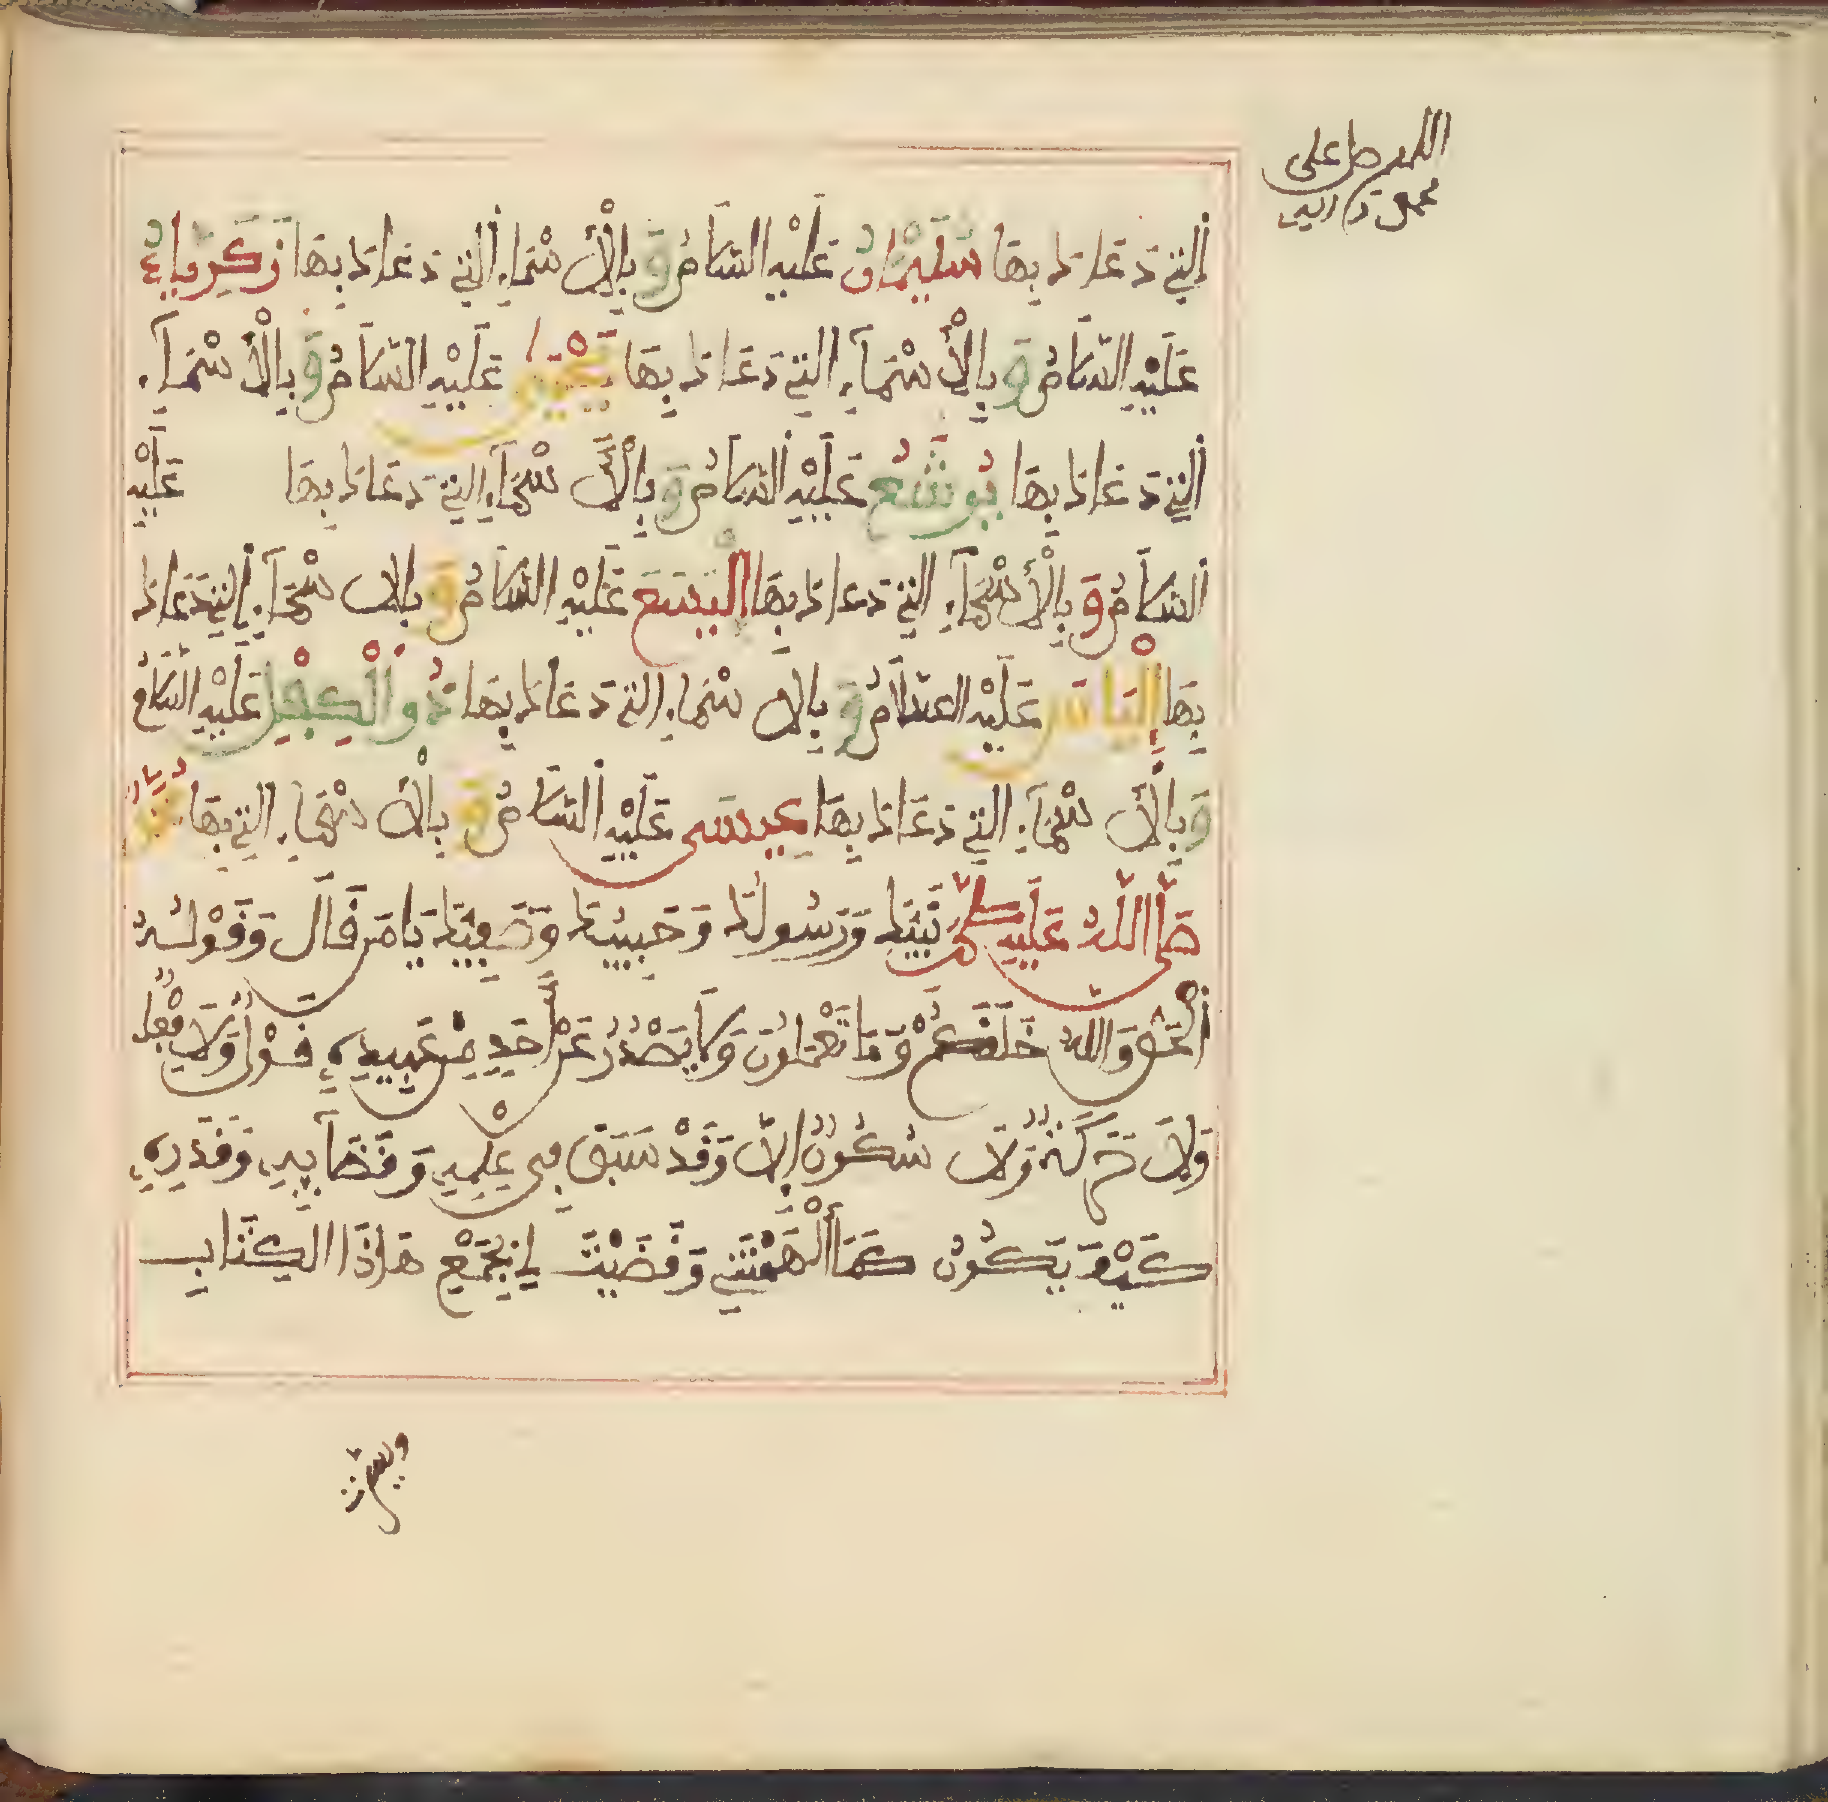 اللهم صل على
محمد وآله
التِي دَعَاكَ بِهَا سُلَيْمَانُ عَلَيْهِ السَّلَامُ وَبِالْأَسْمَاءِ التِي دَعَاكَ بِهَا زَكَرِيَّاءُ
عَلَيْهِ السَّلَامُ وَبِالْأَسْمَآءِ التِي دَعَاكَ بِهَا يَحْيَى عَلَيْهِ السَّلَامُ وَبِالْأَسْمَآءِ
التِي دَعَاكَ بِهَا يُوشَعُ عَلَيْهِ السَّلَامُ وَبِالْأَسْمَآءِ التِي دَعَاكَ بِهَا عَلَيْهِ
السَّلَامُ وَبِالْأَسْمَآءِ التِي دَعَاكَ بِهَا الْيَسَعَ عَلَيْهِ السَّلَامُ وَبِالاَسْمَآءِ التِي دَعَاكَ
بِهَا إِلْيَاسَ عَلَيْهِ السَّلَامُ وَبِالاَسْمَاءِ التِي دَعَاكَ بِهَا ذُو الْكِفْلِ عَلَيْهِ السَّلَامُ
وَبِالْأَسْمَآءِ التِي دَعَاكَ بِهَا عِيسَى عَلَيْهِ السَّلَامُ وَبِالْأَسْمَاءِ التِي بِهَا مُحَمَّدٌ
صَلَّى اللَّهُ عَلَيْهِ وَسَلَّمَ نَبِيُّكَ وَرَسُولُكَ وَحَبِيبُكَ وَصَفِيُّكَ يَا مَن قَالَ وَقَوْلُهُ
الْحَقُّ وَاللَّهُ خَلَقَكُمْ وَمَا تَعْمَلُونَ وَلَا يَصْدُرُ عَنْ أَحَدٍ مِنْ عَبِيدِهِ قَوْلٌ وَلَا فِعْلٌ
وَلَا حَرَكَةٌ وَلَا سُكُونٌ إِلَّا وَقَدْ سَبَقَ فِي عِلْمِهِ وَقَضَآئِهِ وَقَدَرِهِ
كَيْفَ يَكُونُ كَمَا أَلْهَمْتَنِي وَقَضَيْتَ لِي بِجَمْعِ هَذَا الْكِتَابِ
ويسرت